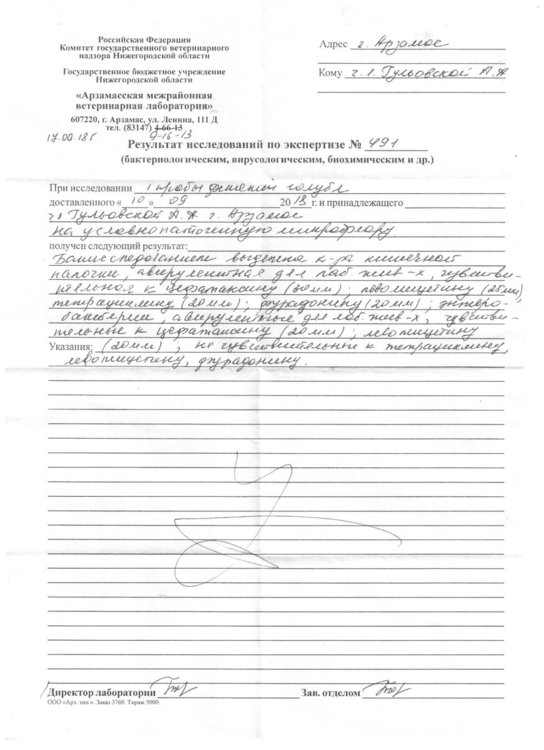 Российская Федерация
Комитет государственного ветеринарного
надзора Нижегородской области
Государственное бюджетное учреждение
Нижегородской области
«Арзамасская межрайонная
ветеринарная лаборатория»
607220, г. Арзамас, ул. Ленина, 111 Д
тел. (83147) 4-66-13
9-16-13
17.09.18г
Адрес г. Арзамас
Кому г. Гульовской А.Я
Результат исследований по экспертизе № 491
(бактериологическим, вирусологическим, биохимическим и др.)
При исследовании 1 пробы голубя
доставленного « 10 » 09 2018 г. и принадлежащего
Гульовской А.Я г. Арзамас
на условнопатогенную микрофлору
получен следующий результат:
Бакисследованием выделена к-ра кишечной
палочки, авирулентная для лаб жив-х, чувстви-
тельная к цефатаксиму (20мм); левомицетину (25мм)
тетрациклину (20мм); фурадонину (20мм); энтеро-
бактерии, авирулентные для лаб жив-х, чувстви-
тельные к (20мм); левомицетину
Указания: (20мм), не чувствительные к тетрациклину,
фурадонину.
Директор лаборатории
Зав. отделом
ООО «Арз. тип.». Заказ 3760. Тираж 5000.